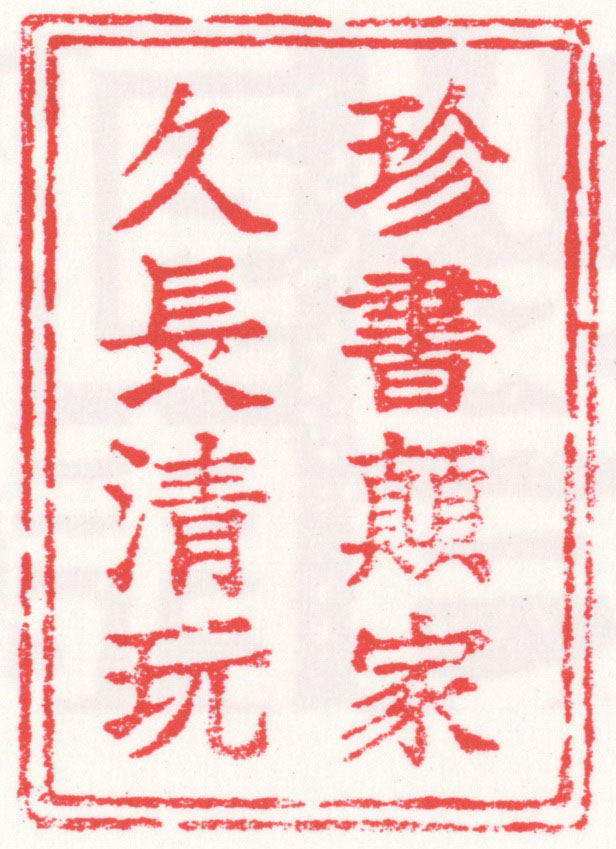 珍書顛家
久長清玩